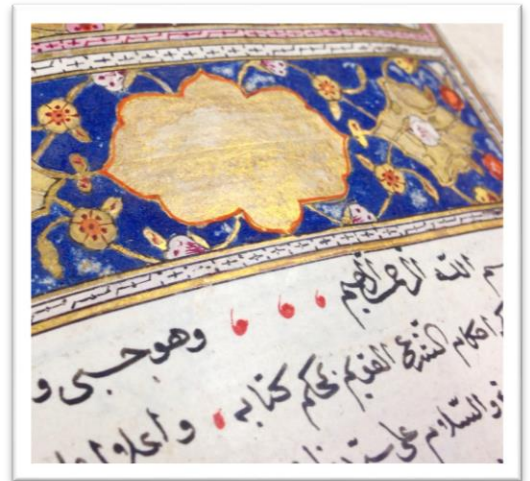 م الله الرحمن الرحيم ، ، ، وهو حسبي و
احكام الشرع القويم بمحكم كتابه ، و اعلا
والسلام على